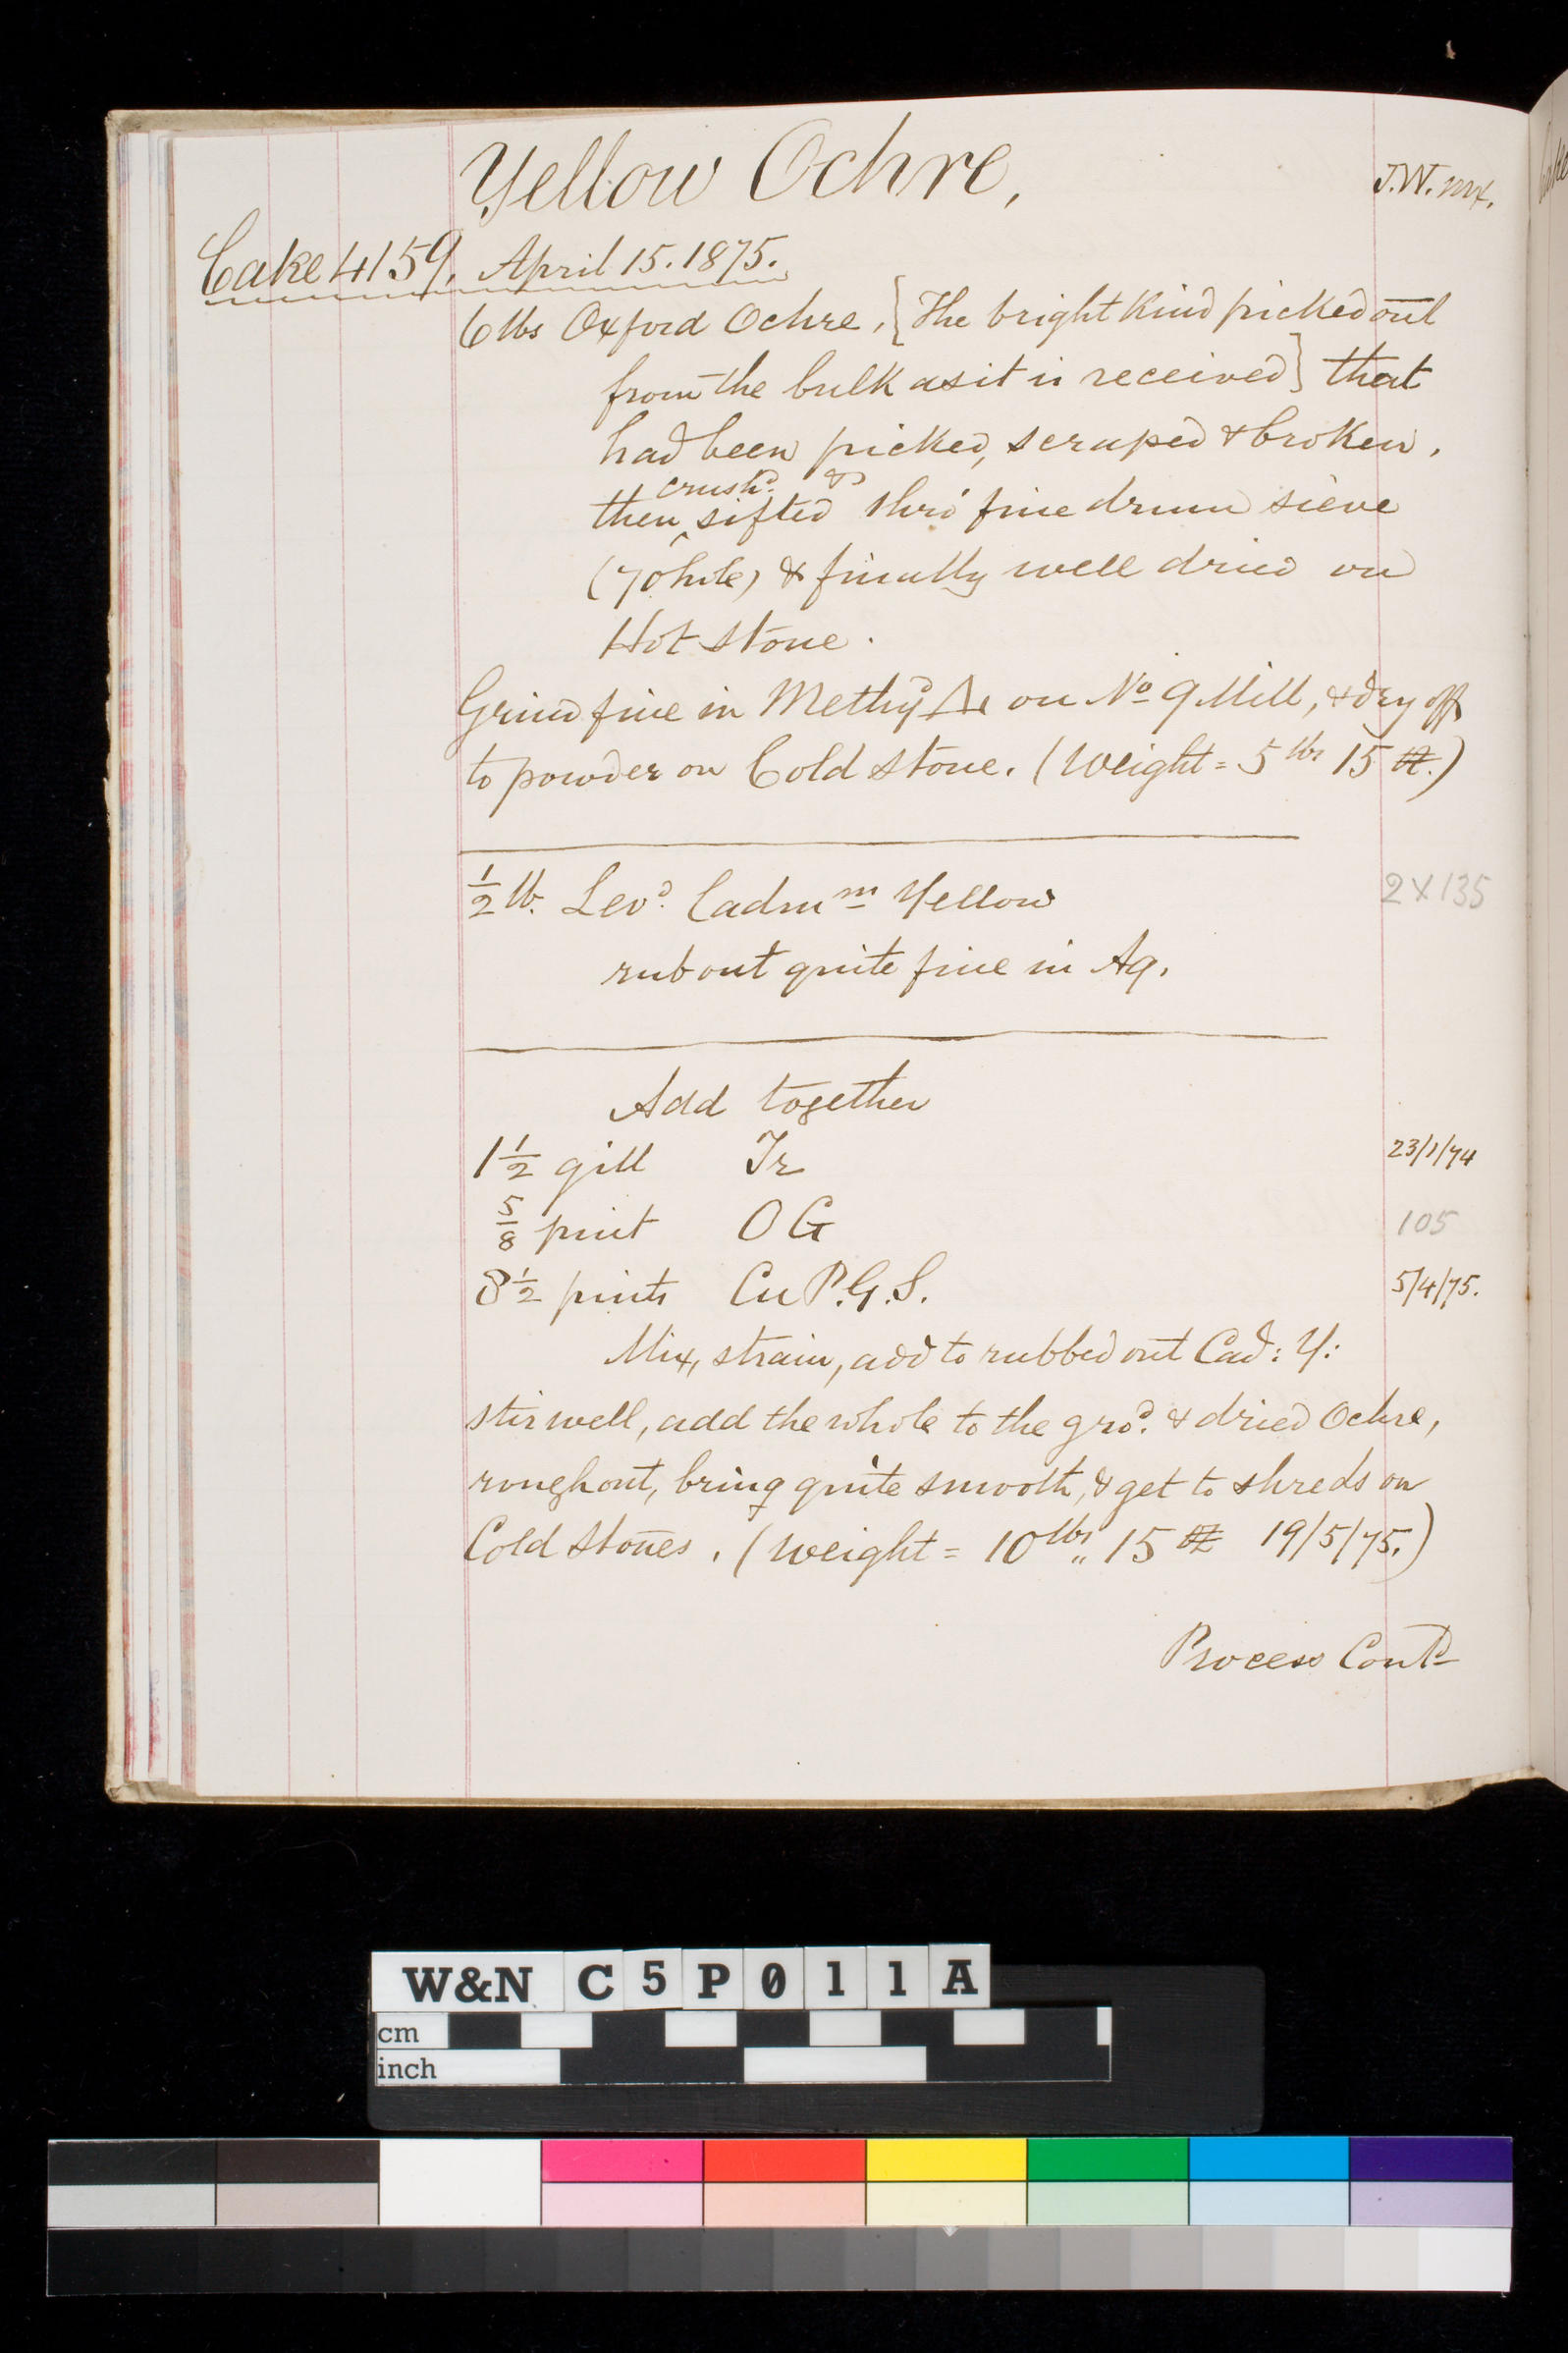 Yellow Ochre,
J.W. mx.
Cake 4159. April 15. 1875.
6 lbs Oxford Ochre, [The bright Kind picked out
from the bulk as it is received] that
had been picked, scraped & broken,
crushd. &
then sifted thro' fine drum sieve
(70 hole) & finally well dried on
Hot stone.
Grind fine in Methyd on No 9 Mill, & dry off
to powder on Cold stone. (Weight = 5 lbs 15 oz.)
1/2 lb. Levd. Cadmm Yellow 2 x 135
rub out quite fine in Aq.
Add together
1 1/2 gill Tr 23/1/74
5/8 pint O G 105
8 1/2 pints Cu P.G.S. 5/4/75.
Mix, strain, add to rubbed out Cad: Y:
stir well, add the whole to the grod. & dried Ochre,
rough out, bring quite smooth, & get to shreds on
Cold Stones. (Weight = 10 lbs „ 15 oz 19/5/75.)
Process Contd
W&N C5P011A
cm
inch